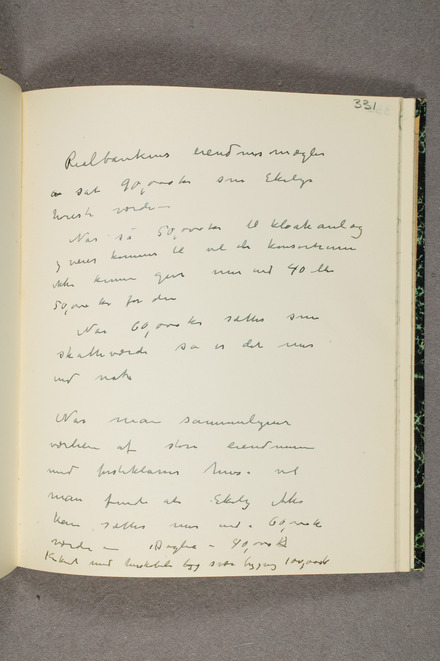 331
Realbankens eiendomsmægler
sat 90,000 kr som Ekelys
høieste værdi –
Når så 50,000 kr til kloakanlæg
og veier kommer til vil et konsortium
ikke kunne give mer end 40 til
50,000 kr for den
Når 60,000 kr sættes som
skatteværdi så er det mer
end nok
Når man sammenligner
værdien af store eiendomme
med
man finde at Ekely ikke
kan sættes mer end 60,000 kr
værdi – 40,000 kr
med bygg 100,000 kr